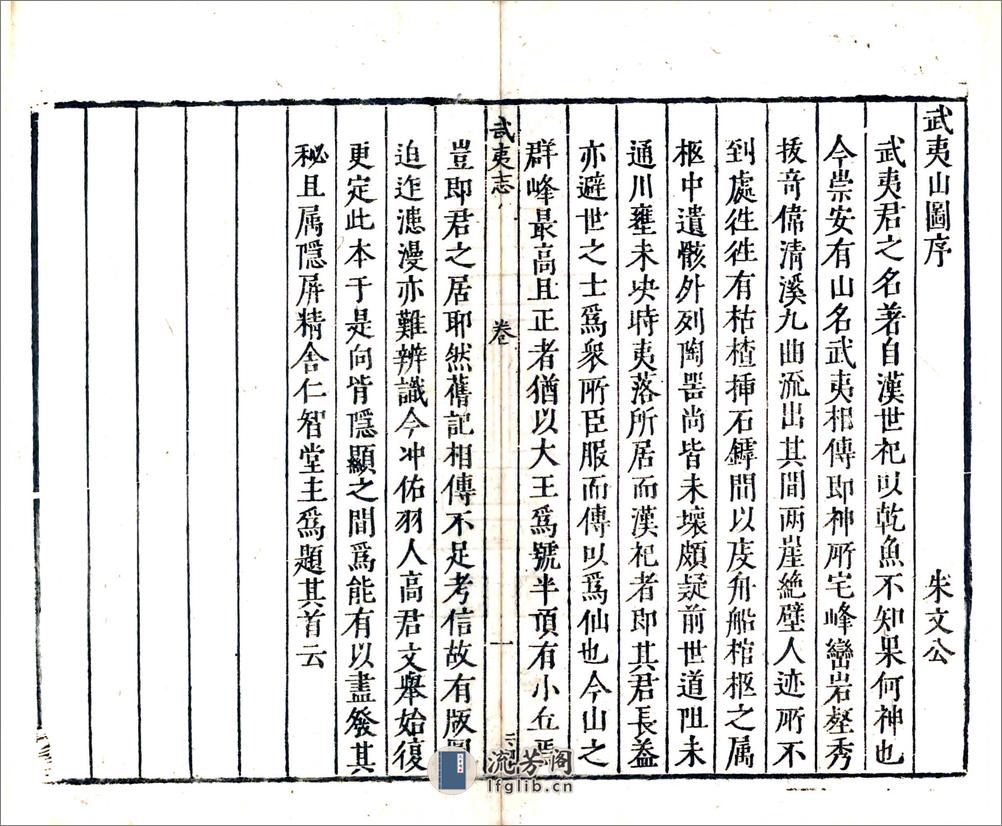 武夷山圖序
朱文公
武夷君之名著自漢世祀以乾魚不知果何神也
今崇安有山名武夷相傳即神所宅峰巒岩壑秀
拔奇偉清溪九曲流出其間两崖絶壁人迹所不
到處徃徃有枯楂挿石罅間以庋舟船棺柩之属
柩中遺骸外列陶噐尚皆未壞頗疑前世道阻未
通川壅未决時夷落所居而漢祀者即其君長盖
亦避世之士爲衆所臣服而傳以爲仙也今山之
群峰最高且正者猶以大王爲號半頂有小丘焉
武夷志
卷
一
豈即君之居耶然舊記相傳不足考信故有版圖
迫迮漶漫亦難辨識今冲佑羽人高君文舉始復
更定此本于是向背隱顯之間爲能有以盡發其
秘且属隱屏精舎仁智堂主爲題其首云
流芳阁
lfglib.cn